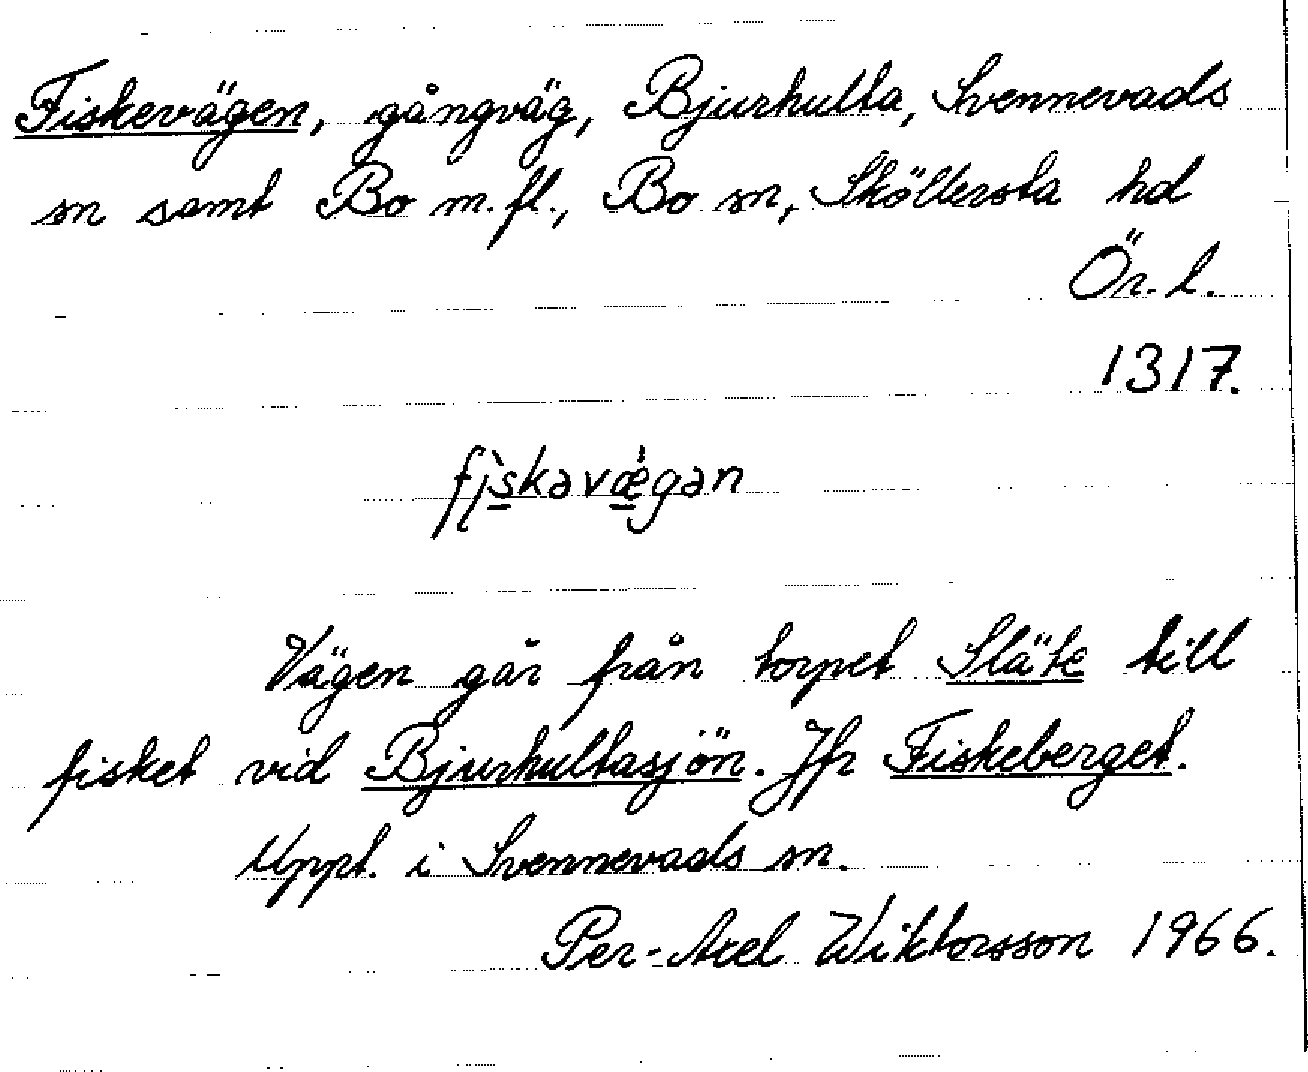 Fiskevägen, gångväg, Bjurhulta, Svennevads
sn samt Bo m.fl., Bo sn, Sköllersta hd
Ör. l.
1317.
fı̀skavǽgən
Vägen går från torpet Släte till
fisket vid Bjurhultasjön. Jfr Fiskeberget.
Uppt. i Svennevads sn.
Per-Axel Wiktorsson 1966.